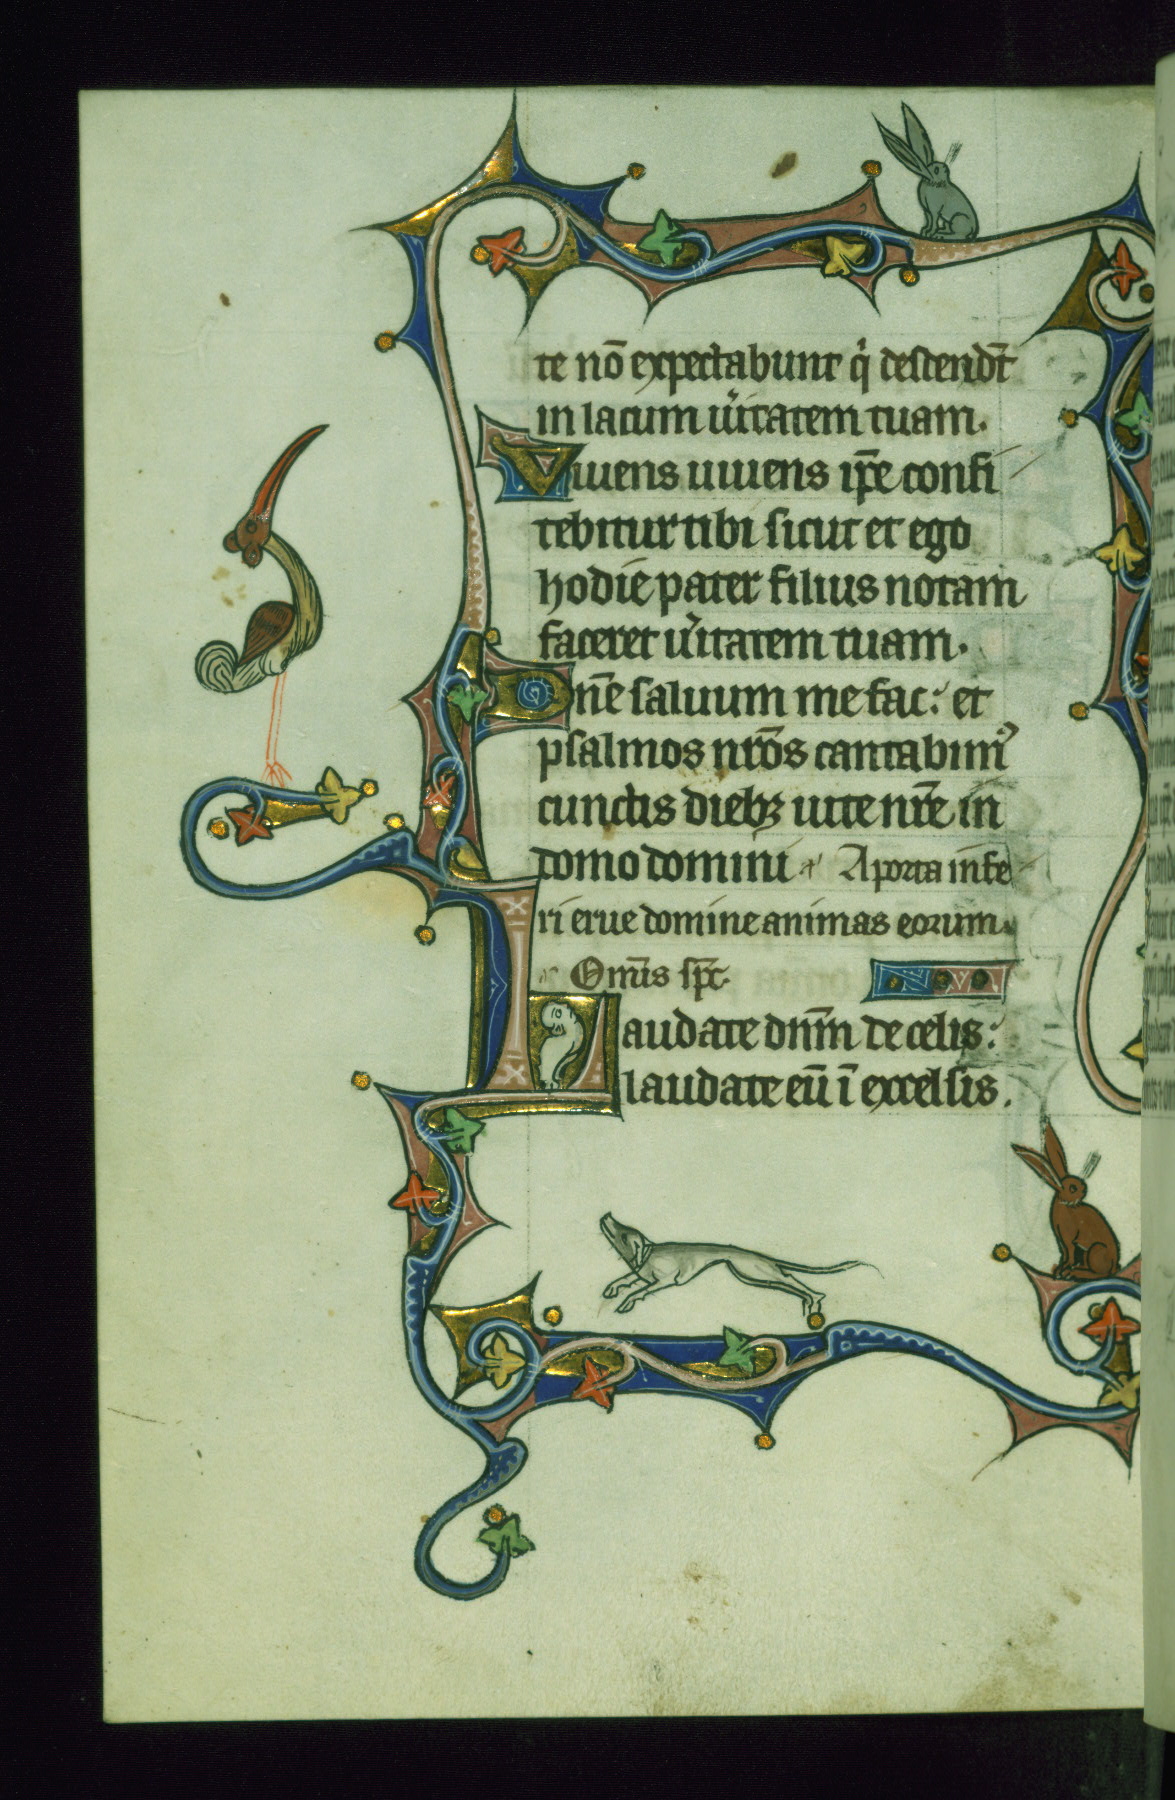 te nō expectabunt q̄ı descendūt
in lacum ůitatem tuam.
Viuens uiuens ip̄e confi
tebitur tibi sicut et ego
hodie pater filius notam
faceret ůitatem tuam.
Dn̄e saluum me fac: et
psalmos nr̄os cantabimꝰ
cunctis diebꝫ uite nr̄e in
domo domini a' A porta infe
ri erue domine animas eorum.
Om̄is sp̄c.
Laudate dn̄m de celis:
laudate eū ī excelsis.